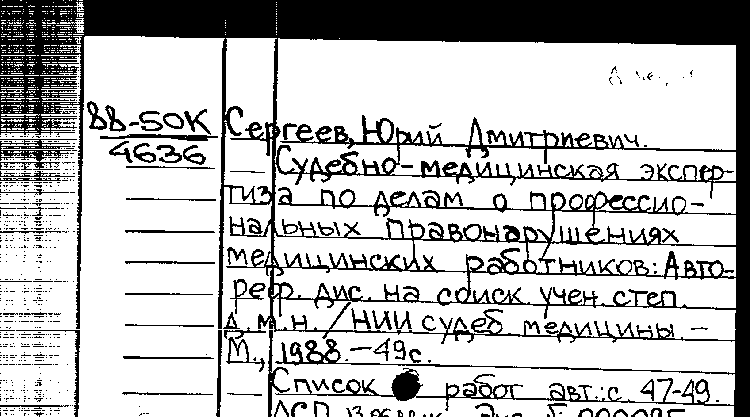 88-50К
4636
Сергеев, Юрий Дмитриевич.
Судебно-медицинская экспер-
тиза по делам о профессио-
нальных правонарушениях
медицинских работников: Авто-
реф. дис. на соиск. учен. степ.
д.м.н. / НИИ судеб. медицины. -
М., 1988. - 49 с.
Список работ авт.: с. 47-49.
ДСП